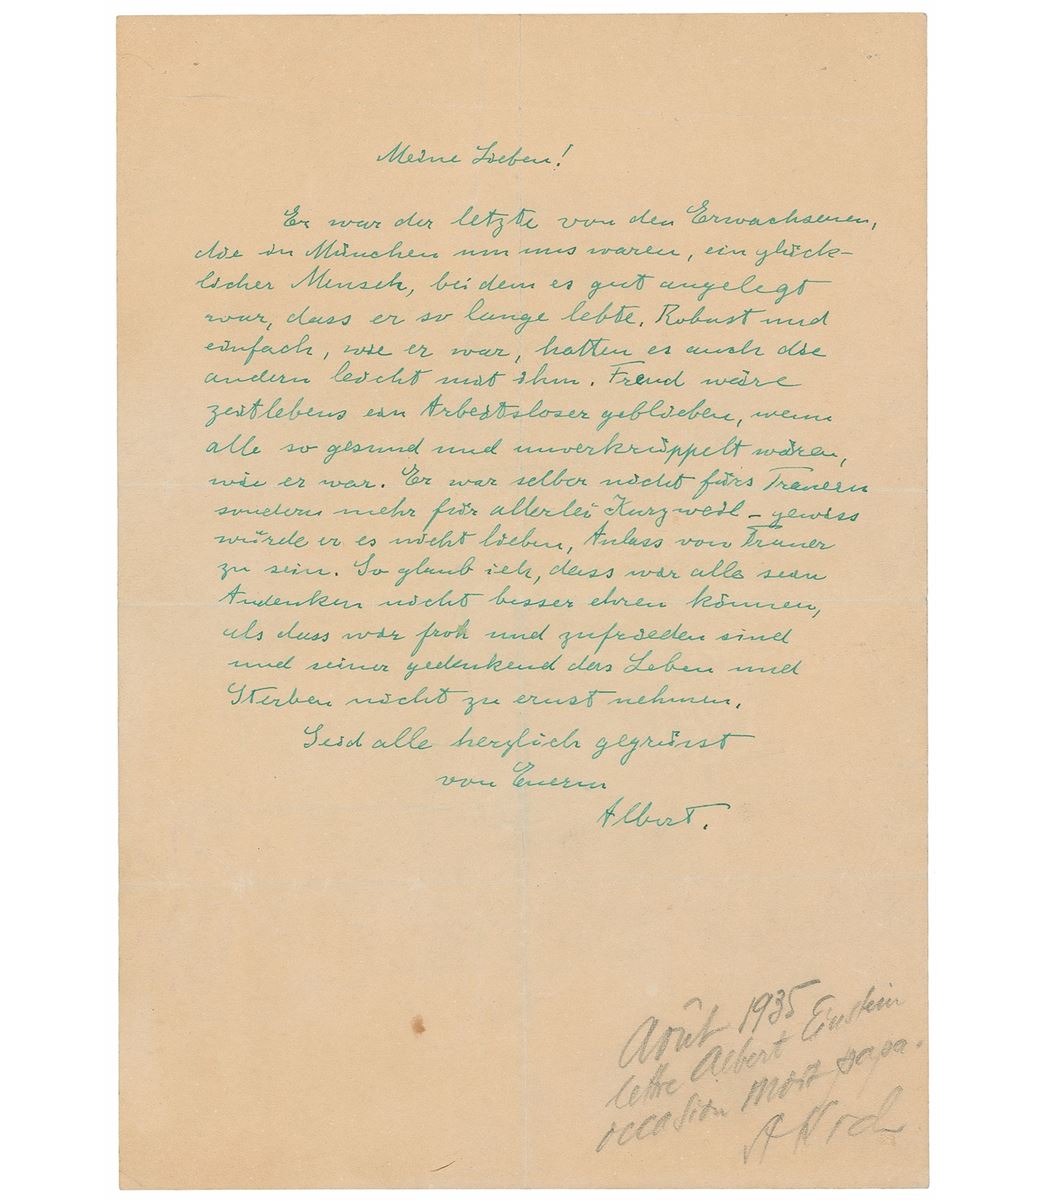 Meine Lieben!
Er war der letzte von den Erwachsenen,
die in München um uns waren, ein glück-
licher Mensch, bei dem es gut angelegt
war, dass er so lange lebte. Robust und
einfach, wie er war, hatten es auch die
andern leicht mit ihm. Freud wäre
zeitlebens ein Arbeitsloser geblieben, wenn
alle so gesund und unverkrüppelt wären,
wie er war. Er war selber nicht fürs Trauern
sondern mehr für allerlei Kurzweil – gewiss
würde er es nicht lieben, Anlass von Trauer
zu sein. So glaub ich, dass wir alle sein
Andenken nicht besser ehren können,
als dass wir froh und zufrieden sind
und seiner gedenkend das Leben und
Sterben nicht zu ernst nehmen.
Seid alle herzlich gegrüsst
von Euerm
Albert.
Août 1935
lettre Albert Einstein
occasion mort papa.